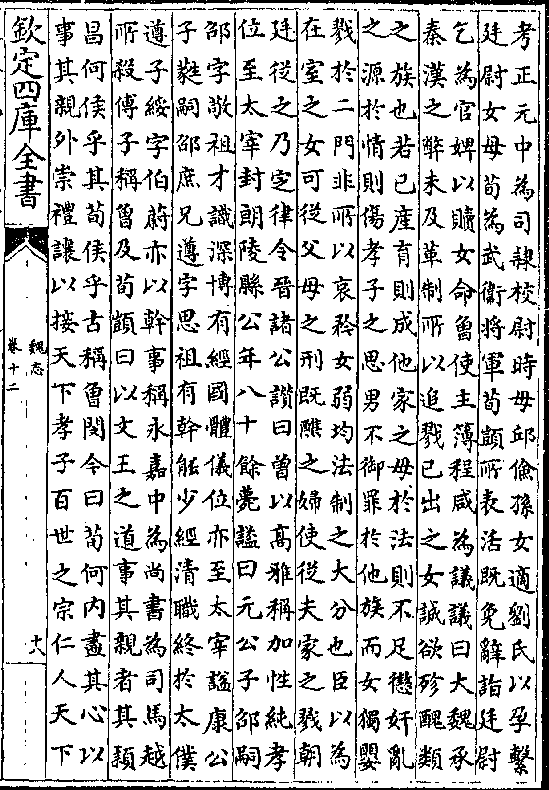 考正元中為司隸校尉時毋邱儉孫女適劉氏以孕繫
廷尉女母荀為武衛將軍荀顗所表活既免辭詣廷尉
乞為官婢以贖女命曾使主簿程咸為議議曰大魏承
秦漢之弊未及革制所以追戮已出之女誠欲殄醜類
之族也若已產育則成他家之母於法則不足懲奸亂
之源於情則傷孝子之思男不御罪於他族而女獨嬰
戮於二門非所以哀矜女弱均法制之大分也臣以為
在室之女可從父母之刑既醮之婦使從夫家之戮朝
廷從之乃定律令晉諸公讚曰曾以高雅稱加性純孝
位至太宰封朗陵縣公年八十餘薨諡曰元公子邵嗣
邵字敬祖才識深博有經國體儀位亦至太宰諡康公
子蕤嗣邵庶兄遵字思祖有幹能少經清職終於太僕
遵子綏字伯蔚亦以幹事稱永嘉中為尚書為司馬越
所殺傅子稱曾及荀顗曰以文王之道事其親者其頴
昌何侯乎其荀侯乎古稱曾閔今曰荀何內盡其心以
事其親外崇禮讓以接天下孝子百世之宗仁人天下
欽定四庫全書
魏志
卷十二
十八